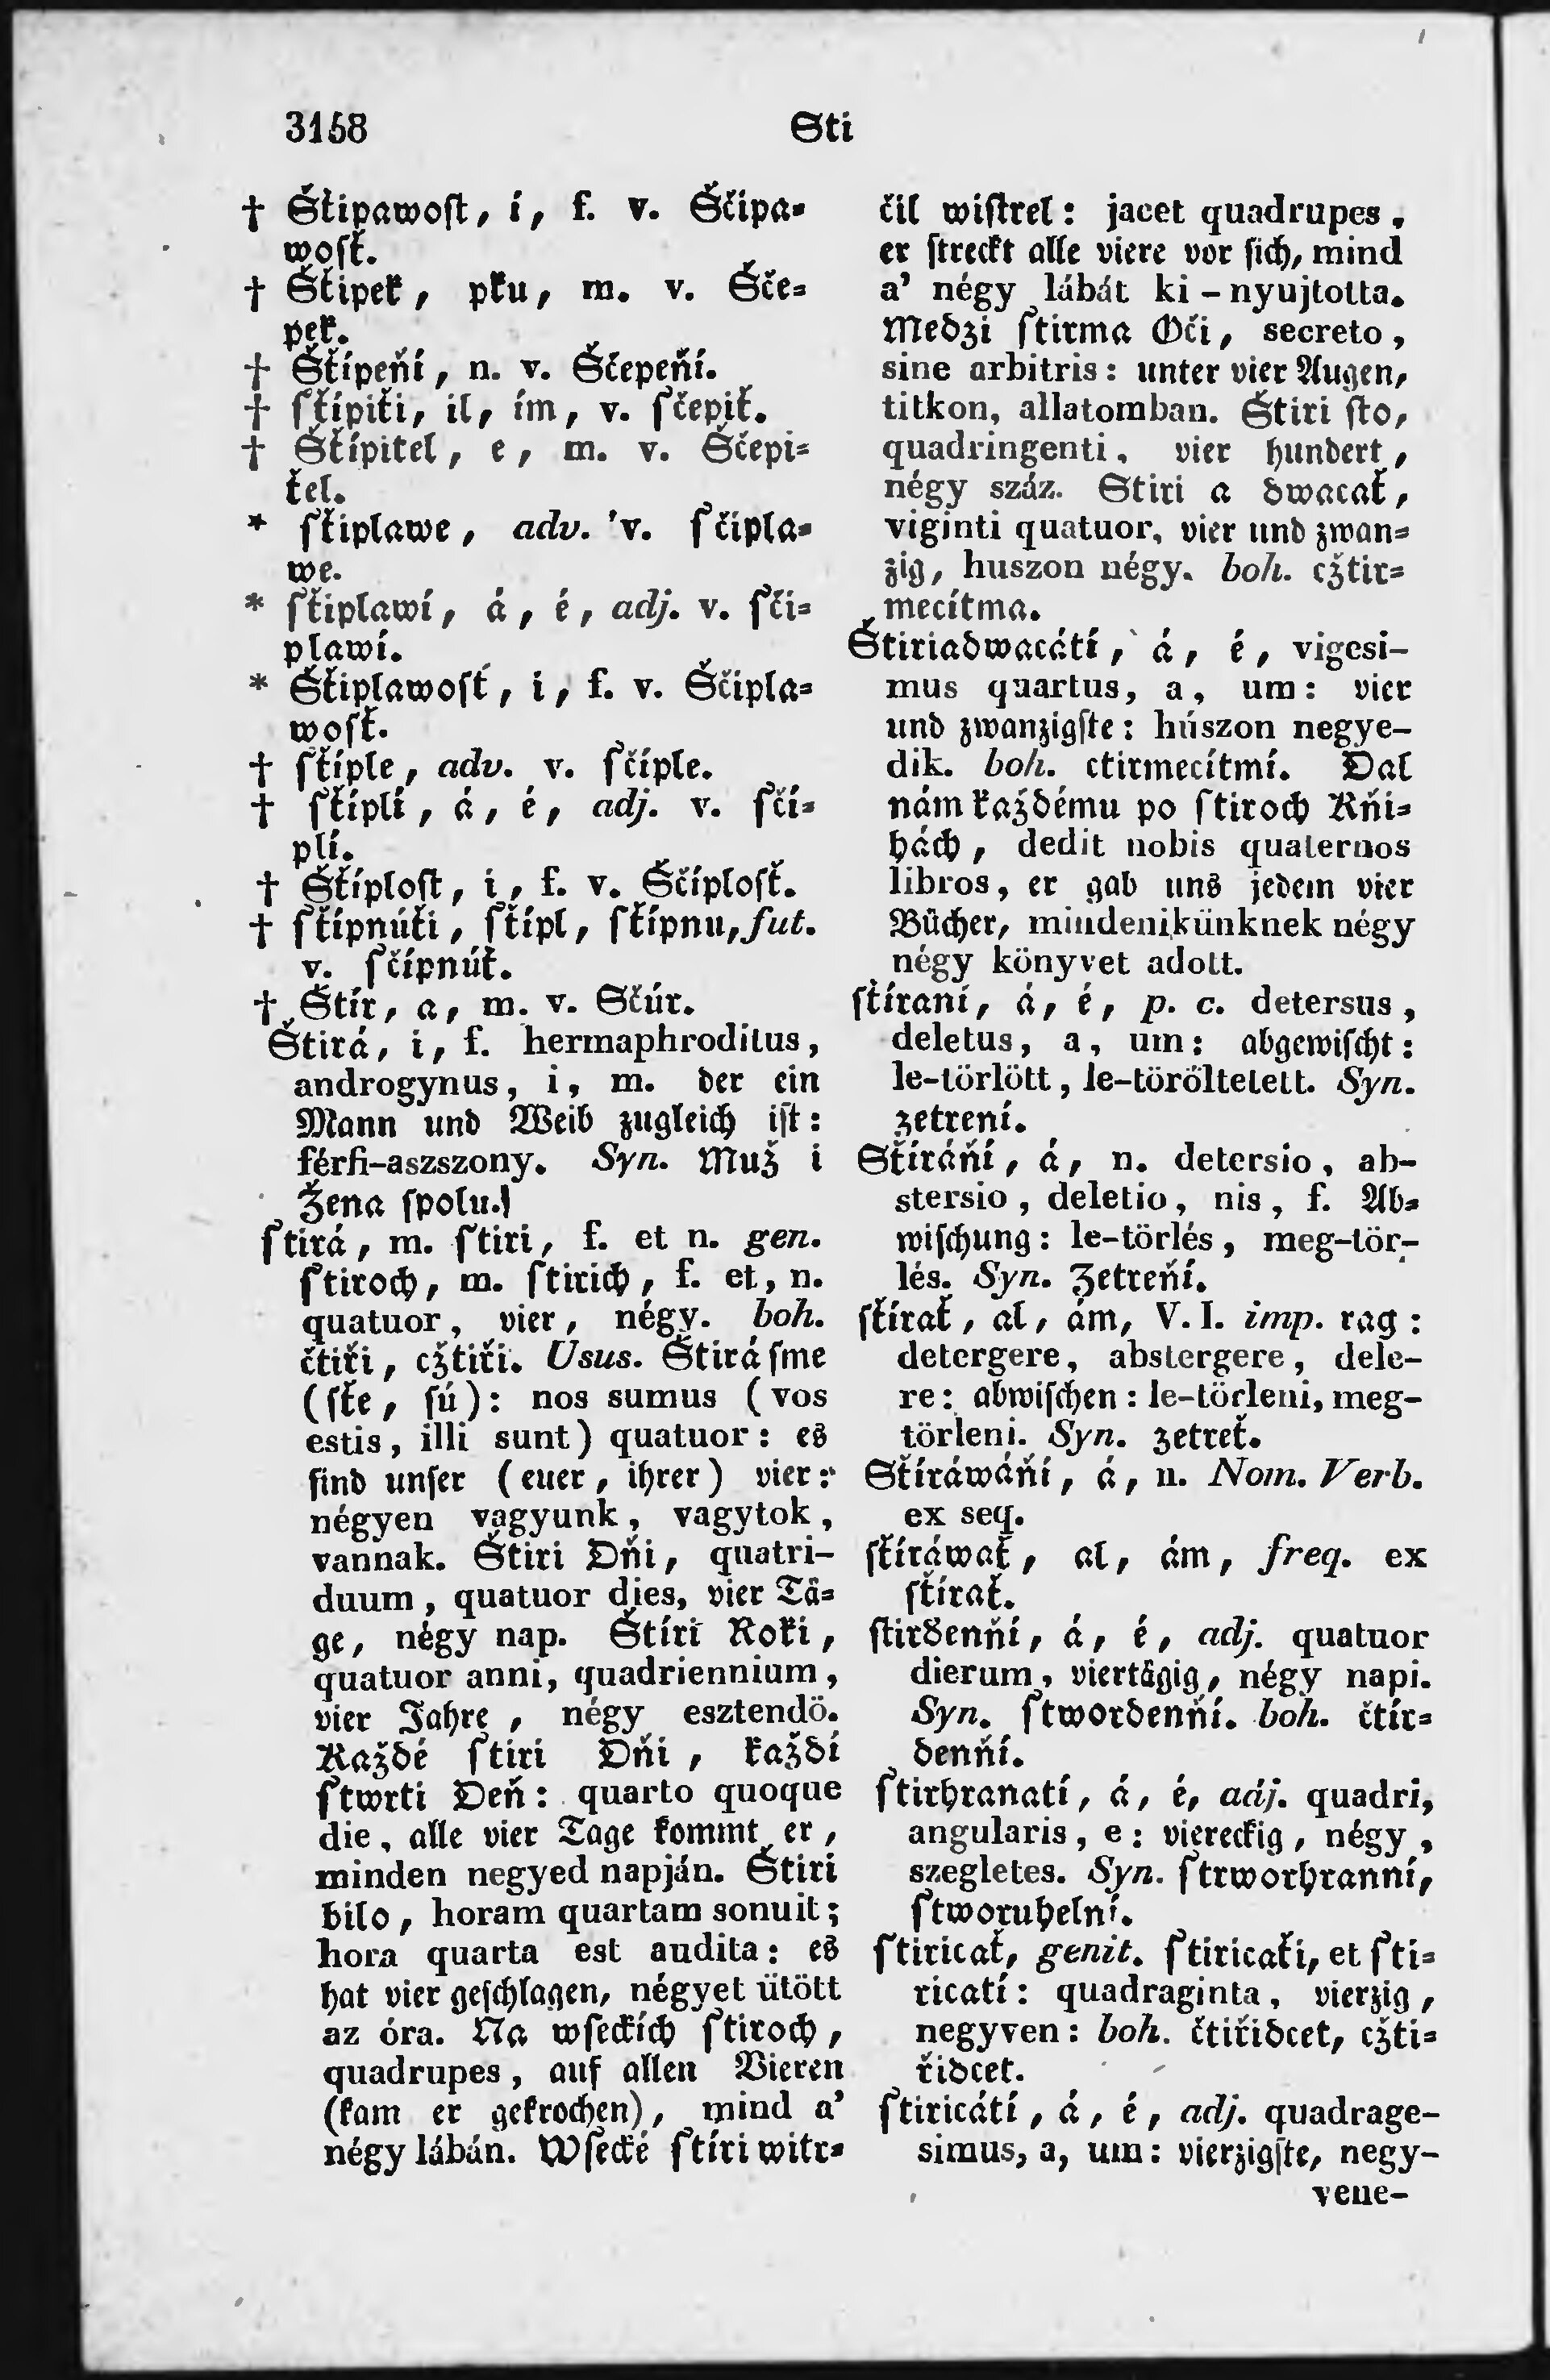 3158 Sti
† Šťipawoſt, i, f. v. Ščipa-
woſť.
† Šťipek, pku, m. v. Šče-
pek.
† Šťípeňí, n. v. Ščepeňí.
† ſťípiťi, il, ím, v. ſčepiť.
† Šťípitel, e, m. v. Ščepi-
ťel.
* ſťiplawe, adv. v. ſčipla-
we.
* ſťiplawí, á, é, adj. v. ſči-
plawí.
* Šťiplawoſť, i, f. v. Ščipla-
woſť.
† ſťíple, adv. v. ſčíple.
† ſťíplí, á, é, adj. v. ſčí-
plí.
† Šťíploſt, i, f. v. Ščíploſť.
† ſťípnúťi, ſťípl, ſťípnu, fut.
v. ſčípnúť.
† Štír, a, m. v. Sčúr.
Štirá, i, f. hermaphroditus,
androgynus, i, m. der ein
Mann und Weib zugleich iſt:
férfi-aszszony. Syn. Muž i
Žena ſpolu.
ſtirá, m. ſtiri, f. et n. gen.
ſtiroch, m. ſtirich, f. et, n.
quatuor, vier, négy. boh.
čtiři, cžtiři. Usus. Štirá ſme
(ſťe, ſú): nos sumus (vos
estis, illi sunt) quatuor: es
ſind unſer (euer, ihrer) vier:
négyen vagyunk, vagytok,
vannak. Štiri Dňi, quatri-
duum, quatuor dies, vier Tä-
ge, négy nap. Štíri Roki,
quatuor anni, quadriennium,
vier Jahre, négy esztendö.
Každé ſtiri Dňi, každí
ſtwrti Deň: quarto quoque
die, alle vier Tage kommt er,
minden negyed napján. Štiri
bilo, horam quartam sonuit;
hora quarta est audita: es
hat vier geſchlagen, négyet ütött
az óra. Na wſeckích ſtiroch,
quadrupes, auf allen Vieren
(kam er gekrochen), mind a'
négy lábán. Wſecké ſtíri witr-
čil wiſtrel: jacet quadrupes,
er ſtreckt alle viere vor ſich, mind
a' négy lábát ki-nyujtotta.
Medzi ſtirma Oči, secreto,
sine arbitris: unter vier Augen,
titkon, allatomban. Štiri ſto,
quadringenti, vier hundert,
négy száz. Stiri a dwacať,
viginti quatuor, vier und zwan-
zig, huszon négy. boh. cžtir-
mecítma.
Štiriadwacátí, á, é, vigesi-
mus quartus, a, um: vier
und zwanzigſte: húszon negye-
dik. boh. ctirmecítmí. Dal
nám každému po ſtiroch Kňi-
hách, dedit nobis quaternos
libros, er gab uns jedem vier
Bücher, mindenikünknek négy
négy könyvet adott.
ſťíraní, á, é, p. c. detersus,
deletus, a, um: abgewiſcht:
le-törlött, le-töröltetett. Syn.
zetrení.
Sťíráňí, á, n. detersio, ab-
stersio, deletio, nis, f. Ab-
wiſchung: le-törlés, meg-tör-
lés. Syn. Zetreňí.
ſťírať, al, ám, V. I. imp. rag:
detergere, abstergere, dele-
re: abwiſchen: le-törleni, meg-
törleni. Syn. zetreť.
Sťíráwáňí, á, n. Nom. Verb.
ex seq.
ſťíráwať, al, ám, freq. ex
ſťírať.
ſtirdenňí, á, é, adj. quatuor
dierum, viertägig, négy napi.
Syn. ſtwordenňí. boh. čtír-
denňí.
ſtirhranatí, á, é, adj. quadri,
angularis, e: viereckig, négy,
szegletes. Syn. ſtrworhranní,
ſtworuhelní.
ſtiricať, genit. ſtiricaťi, et ſti-
ricatí: quadraginta, vierzig,
negyven: boh. čtiřidcet, cžti-
řidcet.
ſtiricátí, á, é, adj. quadrage-
simus, a, um: vierzigſte, negy-
vene-